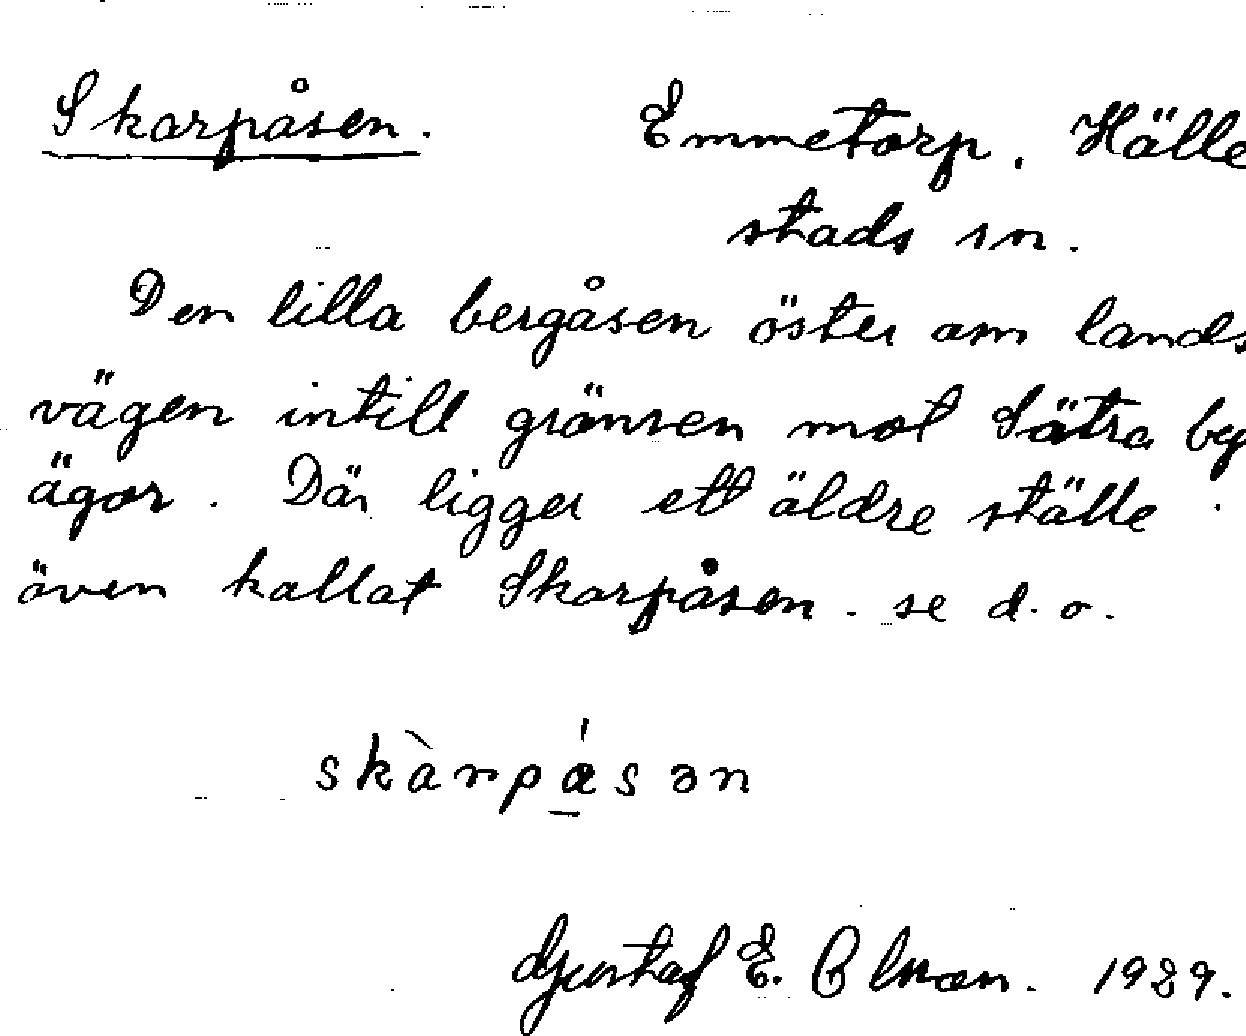 Skarpåsen. Emmetorp. Hälle
stads sn.
Den lilla bergåsen öster om lands
vägen intill gränsen mot Sätra by
ägor. Där ligger ett äldre ställe
även kallat Skarpåsen. se d. o.
skàrpá̲sən
Gustaf E. Olsson. 1929.